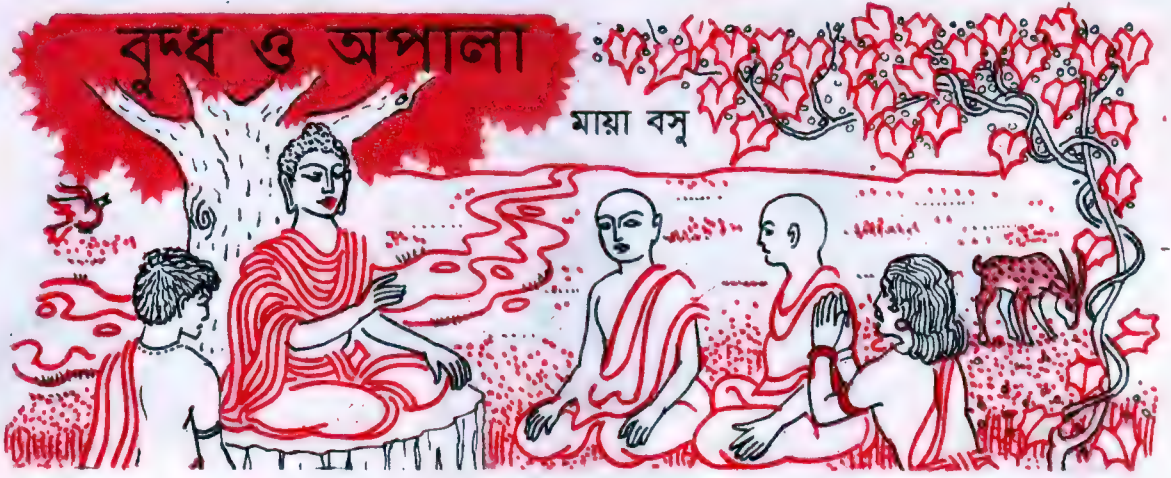 বুদ্ধ ও অপালা
মায়া বসু